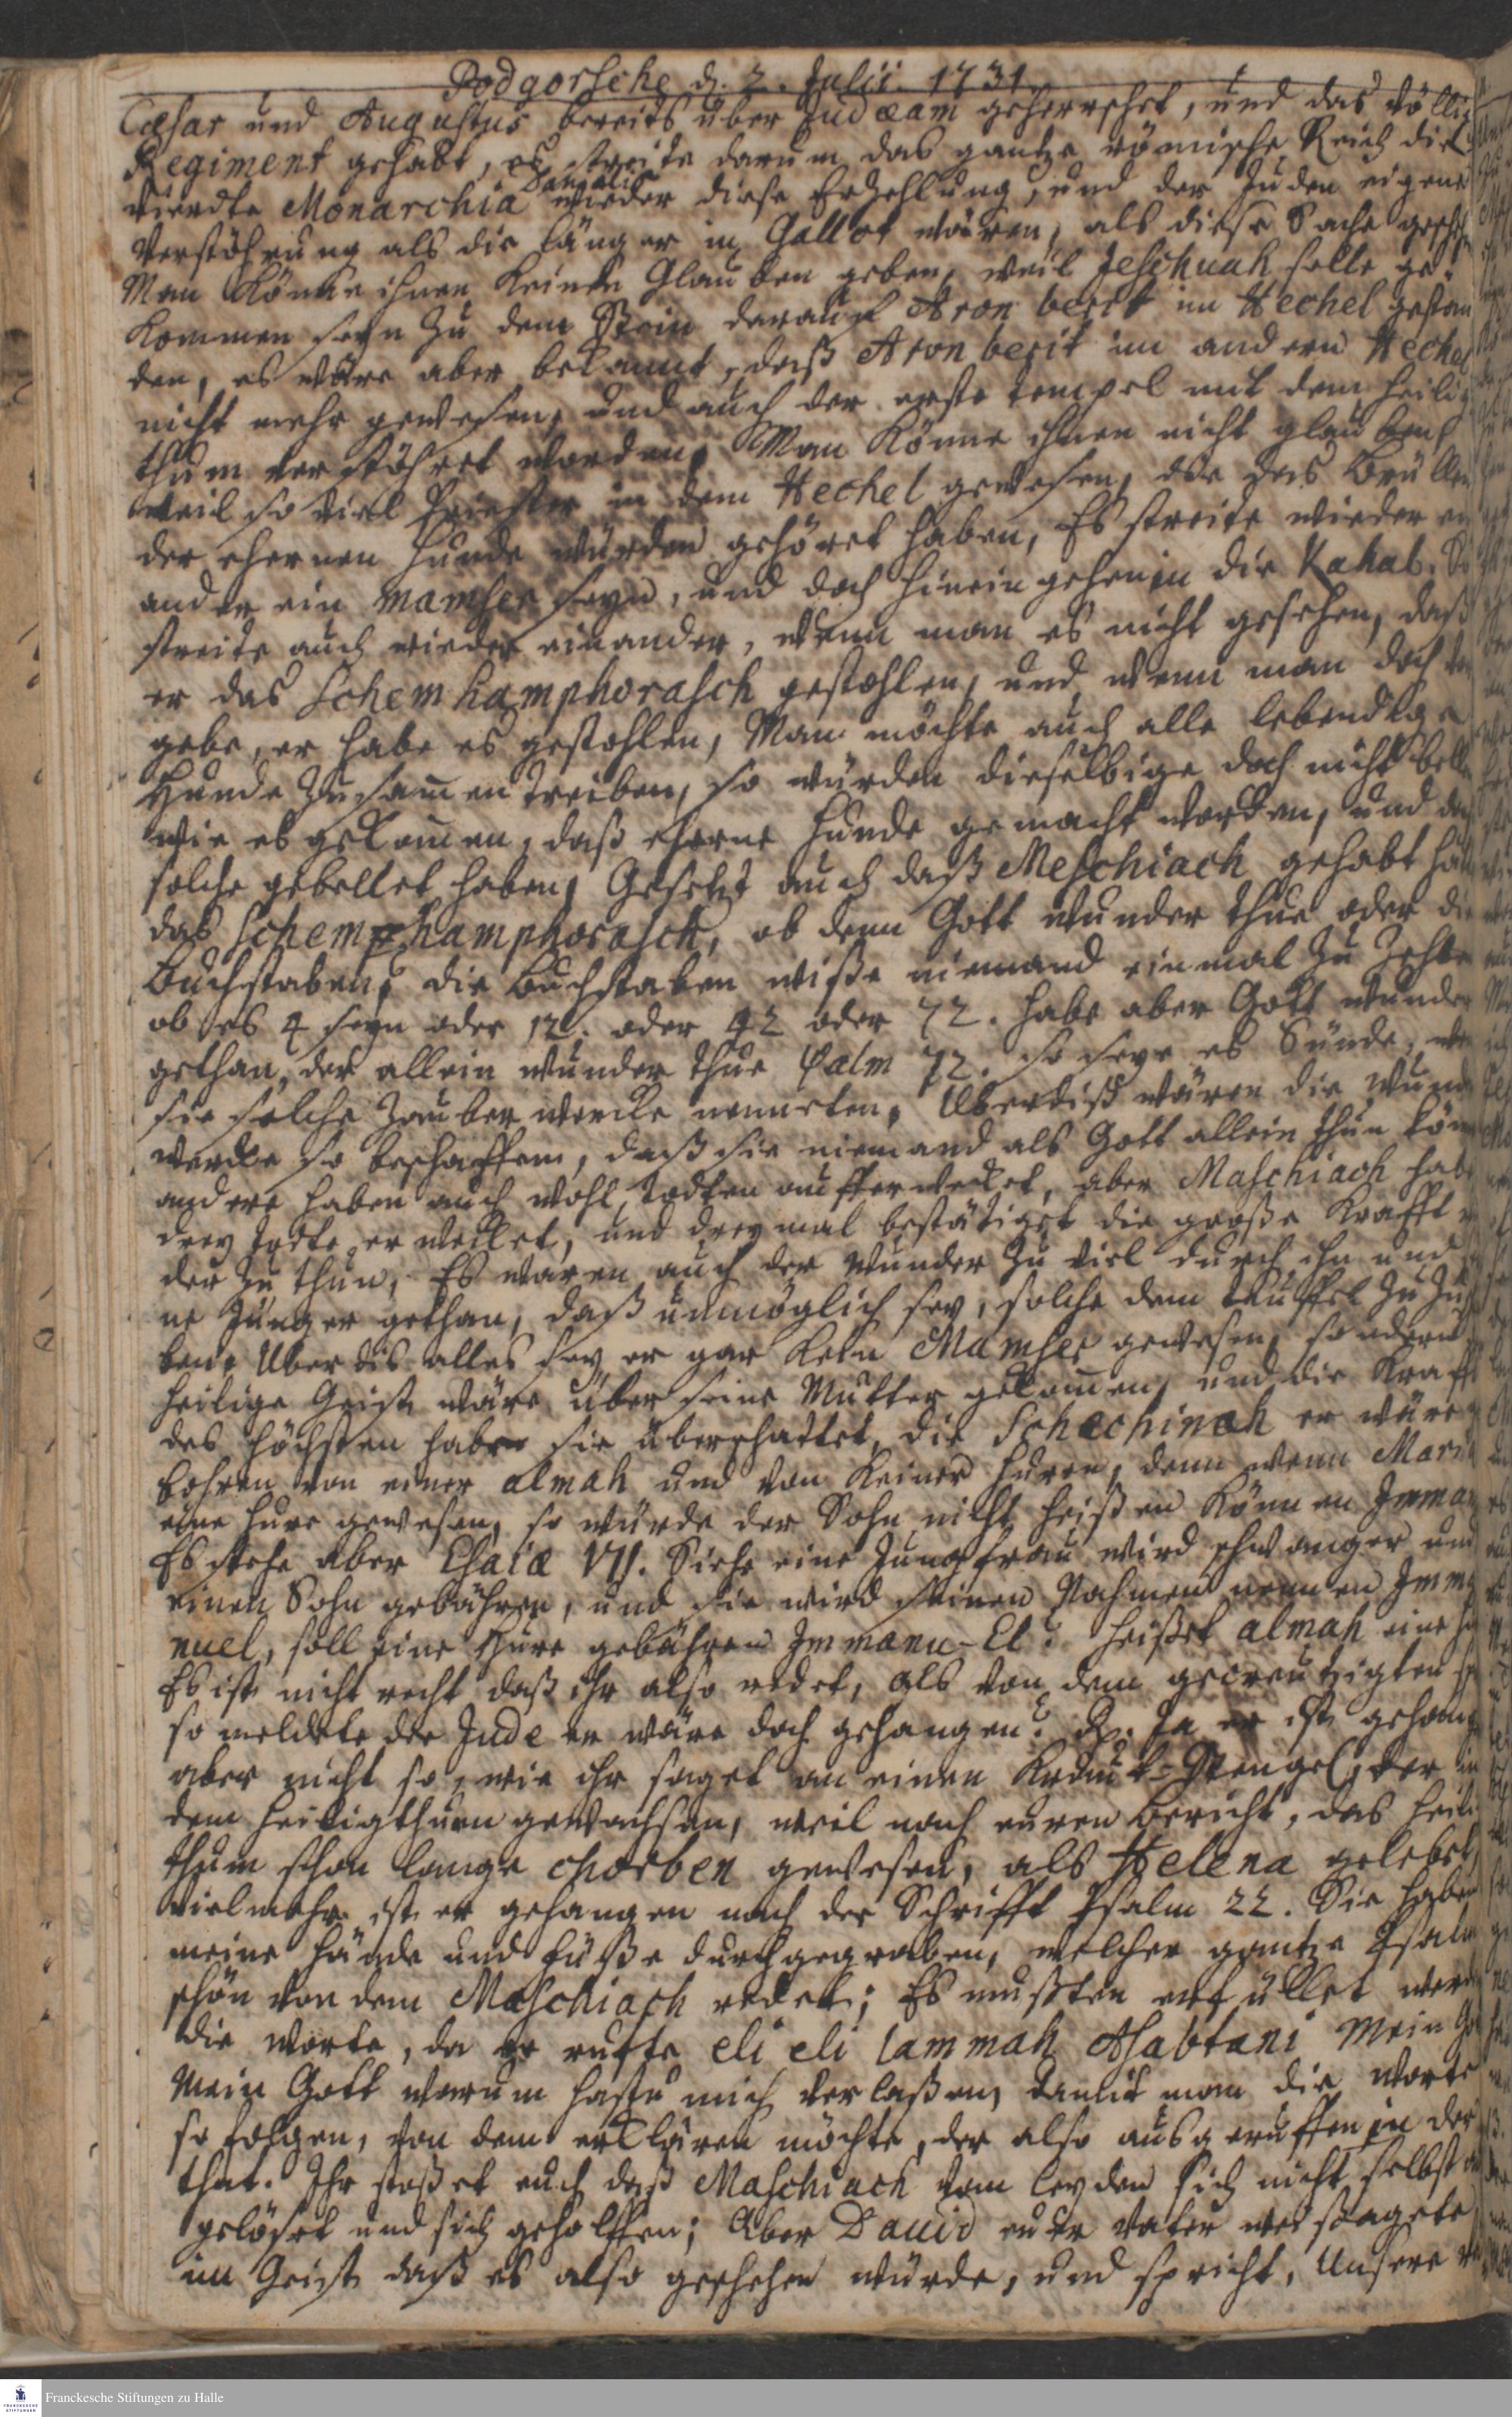 Podgorsche d. 2. Julii. 1731.
Cæsar und Augustus bereits über Judæam geherrschet, und das völli
Regiment gehabt, es streite darum das gantze römische Reich die
Danielis
vierdte Monarchia wieder diese Erzehlung, und der Juden eigene
Verstöhrung als die länger in Gallot wären, als diese Sache gesche
Man könne ihnen keinen Glauben geben, weil Jeschuah solle ge-
kommen seyn zu dem Stein darauf Aron berit im Hechel gestan
den, es wäre aber bekannt, daß Aron berit im andern Hechel
nicht mehr gewesen, und auch der erste tempel mit dem heilig
thum verstöhret worden, Man könne ihnen nicht glauben,
weil so viel Priester in dem Hechel gewesen, die das Brüllen
der ehernen Hunde würden gehöret haben, Es streite wieder ein
ander ein mamser seyn, und doch hinein gehen in die Kahal. Es
streite auch wieder einander, wenn man es nicht gesehen, daß
er das Schemhamphorasch gestohlen, und wenn man doch
gebe, er habe es gestohlen, Man möchte auch alle lebendige
Hunde zusammen treiben, so würden dieselbige doch nicht belle
wie es gekommen, daß eherne Hunde gemacht worden, und da
solche gebellet haben, Gesetzt auch daß Meschiach gehabt hät
das Schemhamphorasch, ob denn Gott Wunder thue oder die
Buchstaben, die Buchstaben wisse niemand einmal zu zehlen
ob es 4 seyn oder 12. oder 42 oder 72. habe aber Gott Wunder
gethan, der allein Wunder thue Psalm 72. so seye es Sünde, we
sie solche Zauberwercke nenneten, Uberdiß wären die Wund
wercke so beschaffen, daß sie niemand als Gott allein thun kön
andere haben auch wohl todten aufferwecket, aber Maschiach hab
drey todte erwecket, und dreymal bestätiget die große Krafft
der zu thun, Es waren auch der Wunder zu viel durch ihn und
ne Jünger gethan, daß unmöglich sey, solche dem teuffel zu zu
ben. Uber dis alles sey er gar kein Mamser gewesen, sondern
heilige Geist wäre über seine Mutter gekommen, und die Krafft
des Höchsten habe sie überschattet, die Schechinah er wäre
bohren von einer almah und von keiner Huren, denn wenn Mari
eine Hure gewesen, so würde der Sohn nicht heißen können Imma
Es stehe aber Esaiæ VII. Siehe eine Jungfrau wird schwanger und
einen Sohn gebähren, und sie wird seinen Nahmen nennen Imma
nuel, soll eine Hure gebähren Immanu-El? heißet almah eine Hu
Es ist nicht recht daß ihr also redet, als von dem gecreutzigten
so meldete der Jude er wäre doch gehangen? R. Ja er ist gehang
aber nicht so, wie ihr saget an einen Kraut-Stengel, der in
dem Heiligthum gewachsen, weil nach euren Bericht, das Heilig
thum schon lange chorben gewesen, als Helena gelebet,
vielmehr ist er gehangen nach der Schrifft Psalm 22. Sie haben
meine Hände und Füße durchgegraben, welcher gantze Psalm
schön von dem Maschiach redet; Es mußten erfüllet werd
die Worte, da er ruffte eli eli lammah Asabtani Mein Go
Mein Gott warum hastu mich verlaßen, damit man die Worte
so folgen, von dem erklären möchte, der also ausgeruffen in der
that. Ihr stoßet euch daß Maschiach vom leyden sich nicht selbst
gelöset und sich geholffen; Aber David euer Vater weissagete
im Geist daß es also geschehen würde, und spricht, Unsere
Franckesche Stiftungen zu Halle